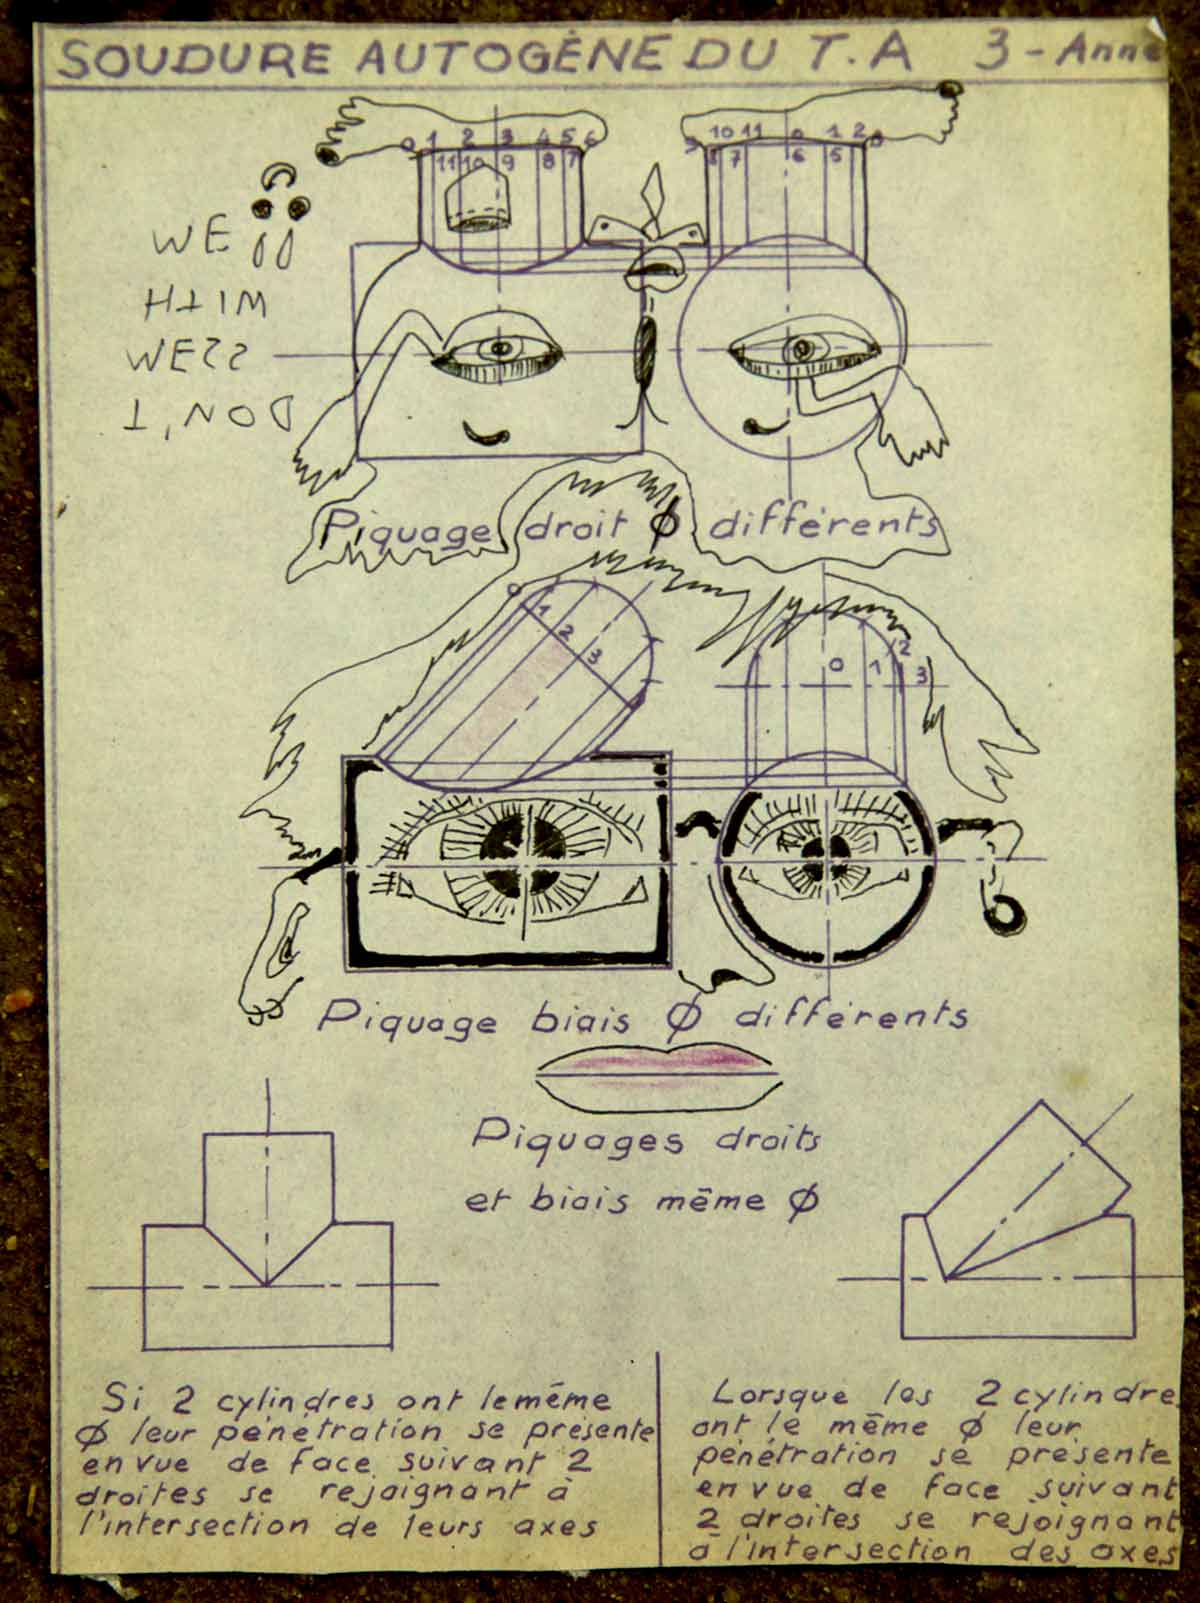 SOUDURE AUTOGÈNE DU T.A 3 - Anné
0 1 2 3 4 5 6
11 10 9 8 7
9 10 11 0 1 2 3
8 7 6 5
DON'T
MESS
WITH
ME
Piquage droit Ø différents
0 1 2 3
0 1 2 3
Piquage biais Ø différents
Piquages droits
et biais même Ø
Si 2 cylindres ont le même
Ø leur pénétration se présente
en vue de face suivant 2
droites se rejoignant à
l'intersection de leurs axes
Lorsque les 2 cylindre
ont le même Ø leur
pénétration se présente
en vue de face suivant
2 droites se rejoignant
à l'intersection des axes